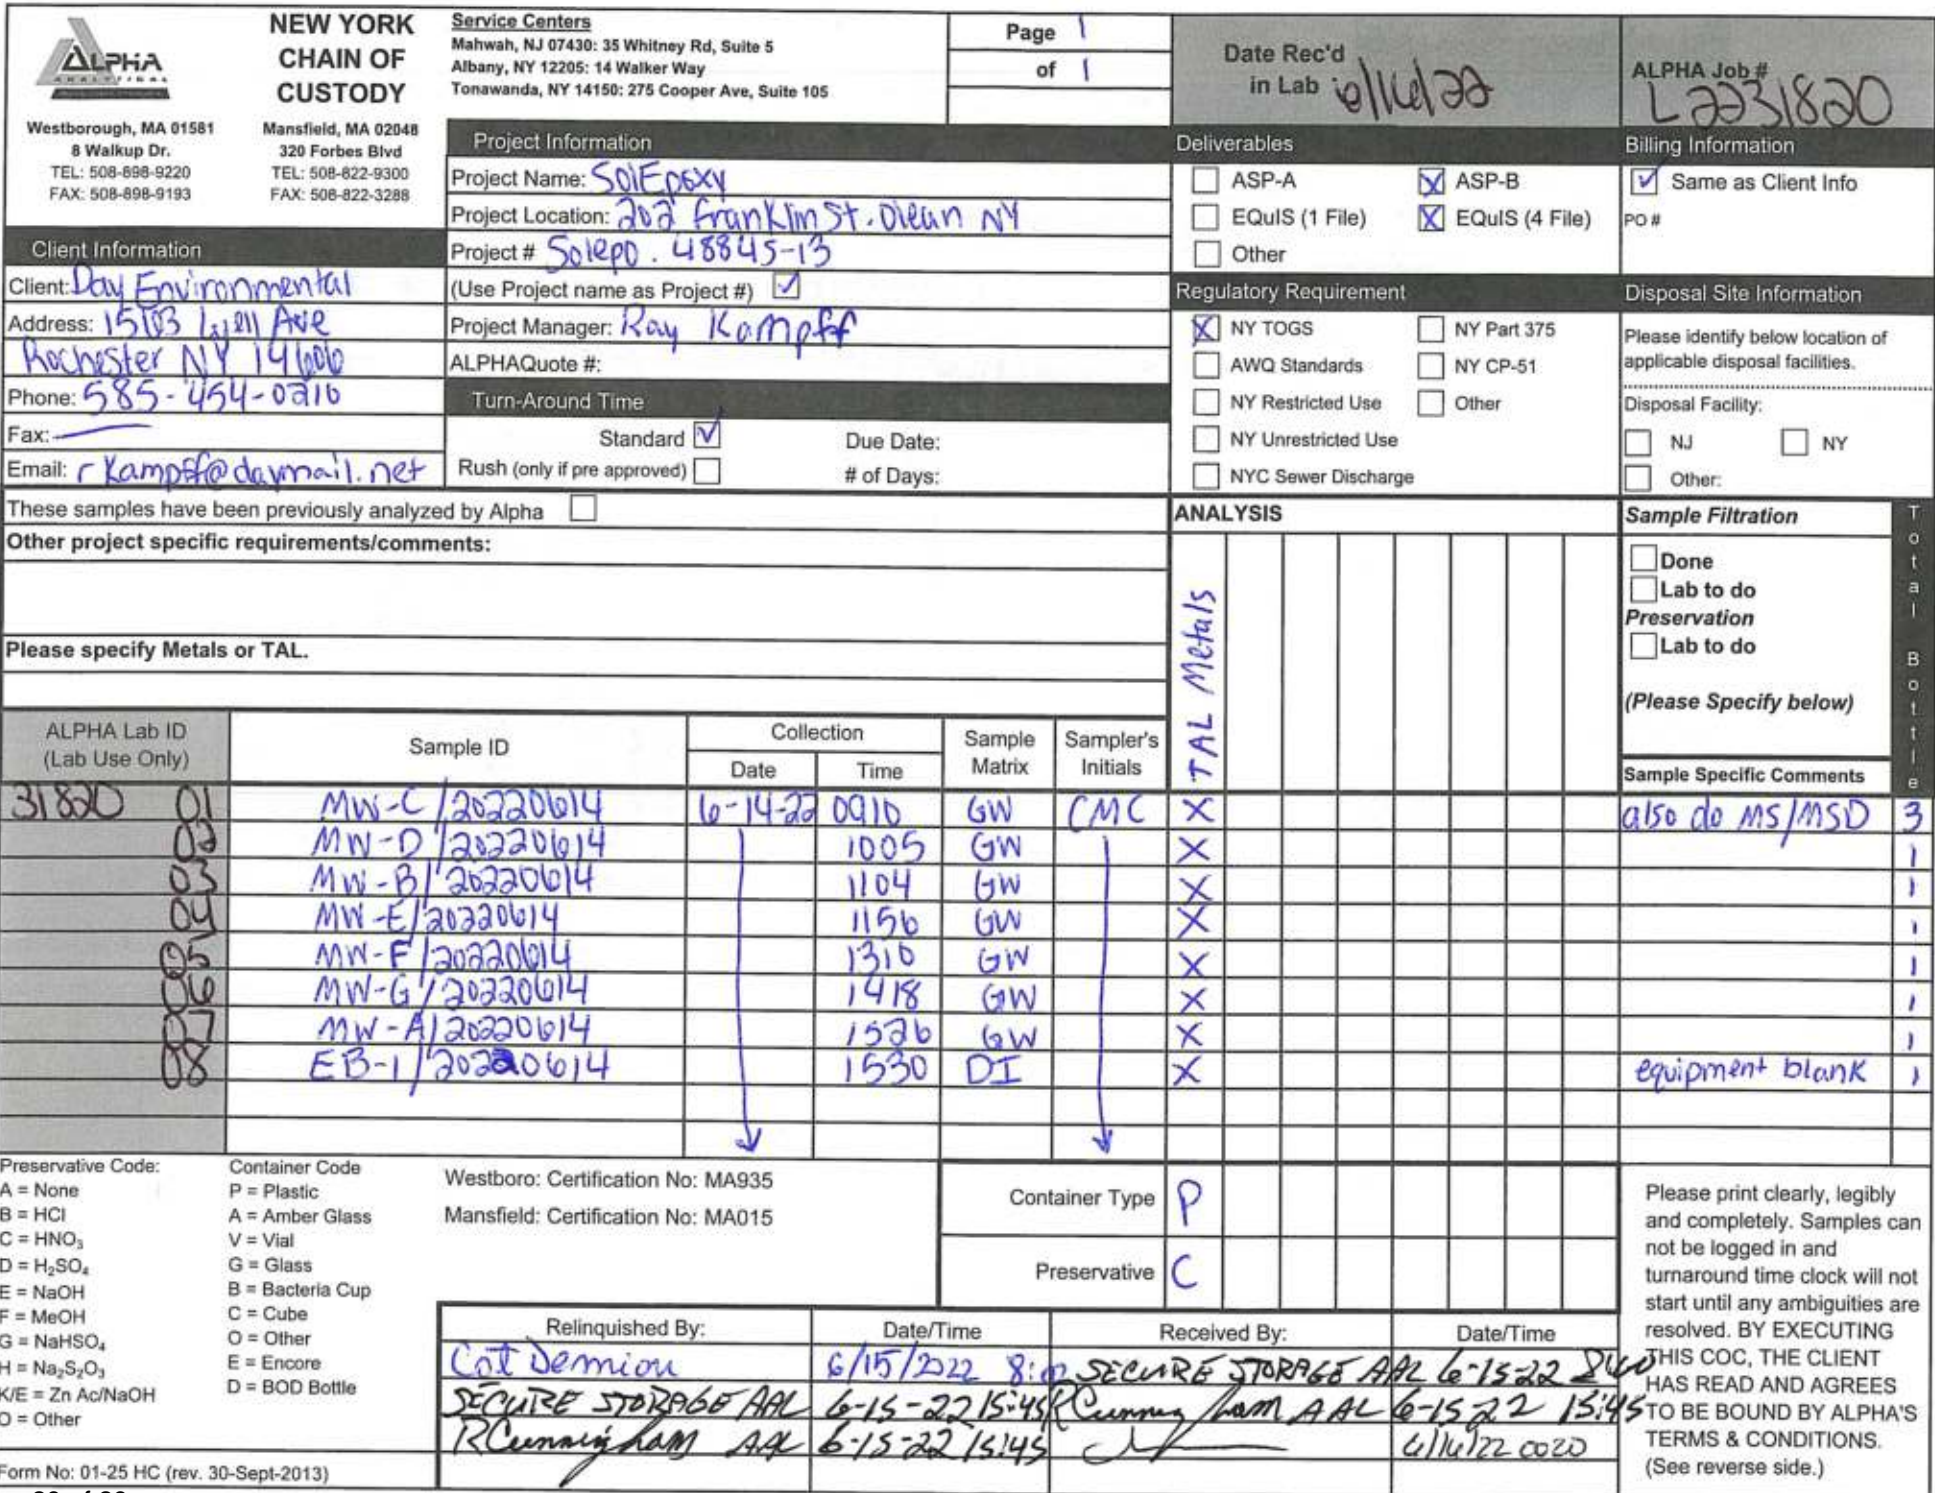 ALPHA
ANALYTICAL
NEW YORK
CHAIN OF
CUSTODY
Westborough, MA 01581
8 Walkup Dr.
TEL: 508-898-9220
FAX: 508-898-9193
Mansfield, MA 02048
320 Forbes Blvd
TEL: 508-822-9300
FAX: 508-822-3288
Service Centers
Mahwah, NJ 07430: 35 Whitney Rd, Suite 5
Albany, NY 12205: 14 Walker Way
Tonawanda, NY 14150: 275 Cooper Ave, Suite 105
Page 1
of 1
Date Rec'd
in Lab 6/16/22
ALPHA Job #
L2231820
Client Information
Client: Day Environmental
Address: 1563 Lyell Ave
Rochester NY 14606
Phone: 585-454-0210
Fax:
Email: rkampff@daymail.net
Project Information
Project Name: SolEpoxy
Project Location: 202 Franklin St. Olean NY
Project # Solepo. 4884S-13
(Use Project name as Project #) ✓
Project Manager: Ray Kampff
ALPHAQuote #:
Turn-Around Time
Standard ✓ Due Date:
Rush (only if pre approved) # of Days:
Deliverables
ASP-A X ASP-B
EQuIS (1 File) X EQuIS (4 File)
Other
Regulatory Requirement
X NY TOGS NY Part 375
AWQ Standards NY CP-51
NY Restricted Use Other
NY Unrestricted Use
NYC Sewer Discharge
Billing Information
✓ Same as Client Info
PO #
Disposal Site Information
Please identify below location of
applicable disposal facilities.
Disposal Facility:
NJ NY
Other:
These samples have been previously analyzed by Alpha
Other project specific requirements/comments:
Please specify Metals or TAL.
ANALYSIS
TAL Metals
Sample Filtration
Done
Lab to do
Preservation
Lab to do
(Please Specify below)
Total Bottle
ALPHA Lab ID
(Lab Use Only)
Sample ID
Collection
Date Time
Sample
Matrix
Sampler's
Initials
Sample Specific Comments
31820 01 MW-C/20220614 6-14-22 0910 GW CMC X also do MS/MSD 3
02 MW-D/20220614 1005 GW X 1
03 MW-B/20220614 1104 GW X 1
04 MW-E/20220614 1156 GW X 1
05 MW-F/20220614 1310 GW X 1
06 MW-G/20220614 1418 GW X 1
07 MW-A/20220614 1526 GW X 1
08 EB-1/20220614 1530 DI X equipment blank 1
Preservative Code:
A = None
B = HCl
C = HNO₃
D = H₂SO₄
E = NaOH
F = MeOH
G = NaHSO₄
H = Na₂S₂O₃
K/E = Zn Ac/NaOH
O = Other
Container Code
P = Plastic
A = Amber Glass
V = Vial
G = Glass
B = Bacteria Cup
C = Cube
O = Other
E = Encore
D = BOD Bottle
Westboro: Certification No: MA935
Mansfield: Certification No: MA015
Container Type P
Preservative C
Relinquished By: Date/Time Received By: Date/Time
6/15/2022 SECURE STORAGE AAL 6-15-22
SECURE STORAGE AAL 6-15-22 15:45 RCunningham AAL 6-15-22 15:45
RCunningham AAL 6-15-22 15:45 6/16/22 0020
Please print clearly, legibly
and completely. Samples can
not be logged in and
turnaround time clock will not
start until any ambiguities are
resolved. BY EXECUTING
THIS COC, THE CLIENT
HAS READ AND AGREES
TO BE BOUND BY ALPHA'S
TERMS & CONDITIONS.
(See reverse side.)
Form No: 01-25 HC (rev. 30-Sept-2013)